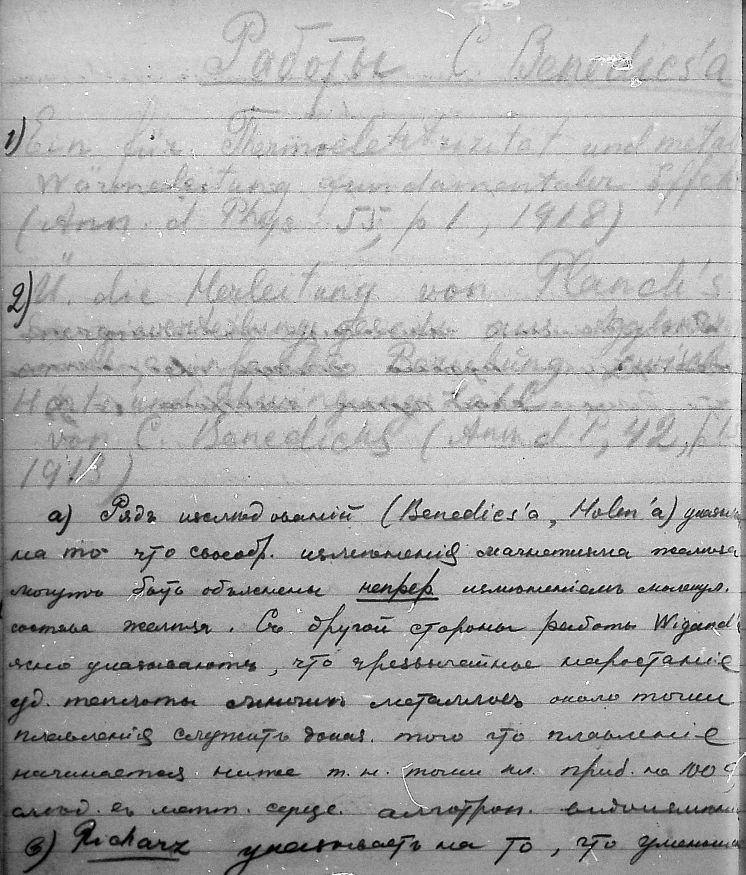 Работы C Benedics'а
1) Ein für Thermoelektrizität und metal
Wärmeleitung fundamentaler Effek
(Ann. d Phys 55, p 1, 1918)
2) Ü. die Herleitung von Planck's
aus
Beziehung zwisch
von C. Benedicks (Ann d P, 42, p 1
1913)
a) Рядъ изслѣдованій (Benedics'а, Holm'а) указы
на то что своеобр. измѣненія магнетизма желѣза
могутъ быть объяснены непрер измѣненіемъ молекул.
состава желѣза. Съ другой стороны работы Wigand
ясно указываютъ, что чрезвычайное наростаніе
уд. теплоты многихъ металловъ около точки
плавленія служитъ доказ. того что плавленіе
начинается ниже т. н. точки пл. приб. на 100°
слѣд. въ алотроп.
в) Richarz указываетъ на то, что уменьш